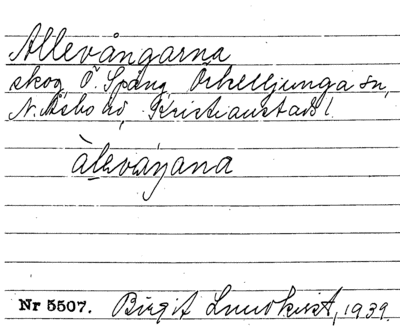 Allevångarna
skog, Ö. Spång, Örkelljunga sn,
N. Åsbo hd, Kristianstads l.
Nr 5507. Birgit Lundkvist, 1939.